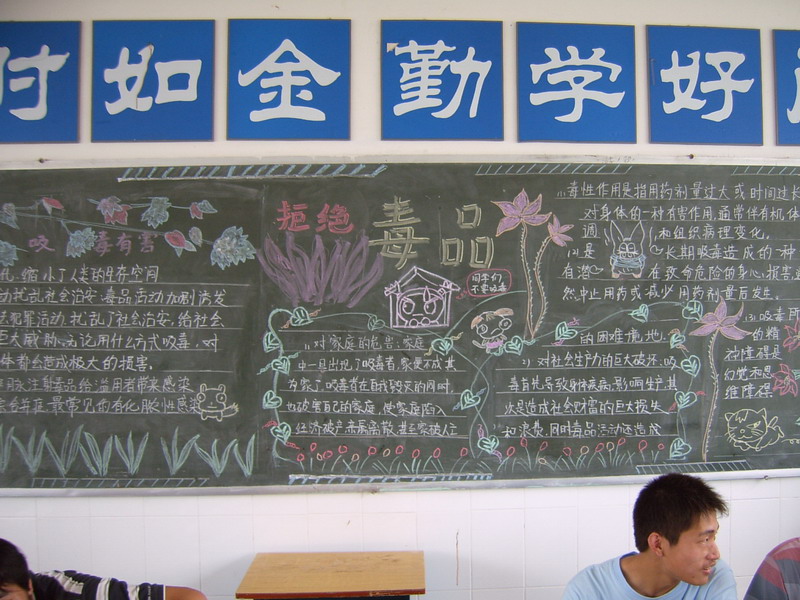 时如金勤学好
拒绝毒品
吸毒有害
缩小了人类的生存空间
动扰乱社会治安,毒品活动加剧诱发
犯罪活动,扰乱了社会治安,给社会
巨大威胁,无论用什么方式吸毒,对
体都会造成极大的损害.
同学们
不要吸毒
1)对家庭的危害:家庭
中一旦出现了吸毒者,家便不成其
为家了,吸毒者在自我毁灭的同时,
也破害自己的家庭,使家庭陷入
经济破产,亲属离散,甚至家破人亡
的困难境地.
2)对社会生产力的巨大破坏:吸
毒首先导致身体疾病,影响生产,其
次是造成社会财富的巨大损失
和浪费,同时毒品活动还造成
毒性作用是指用药剂量过大或时间过长
对身体的一种有害作用,通常伴有机体
和组织病理变化.
长期吸毒造成的一种
在致命危险的身心损害
然中止用药或减少用药剂量后发生.
的精
神障碍是
幻觉和思
维障碍